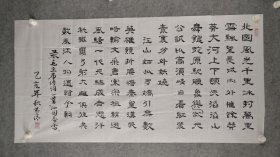 北國風光千里冰封萬里
雪飄望長城內外惟餘莽
莽大河上下頓失滔滔山
舞銀蛇原馳蠟象欲與天
公試比高須晴日看紅裝
素裹分外妖嬈
江山如此多嬌引無數
英雄競折腰惜秦皇漢武
略輸文采唐宗宋祖稍遜
風騷一代天驕成吉思汗
只識彎弓射大雕俱往矣
數風流人物還看今朝
录毛主席
乙亥年秋